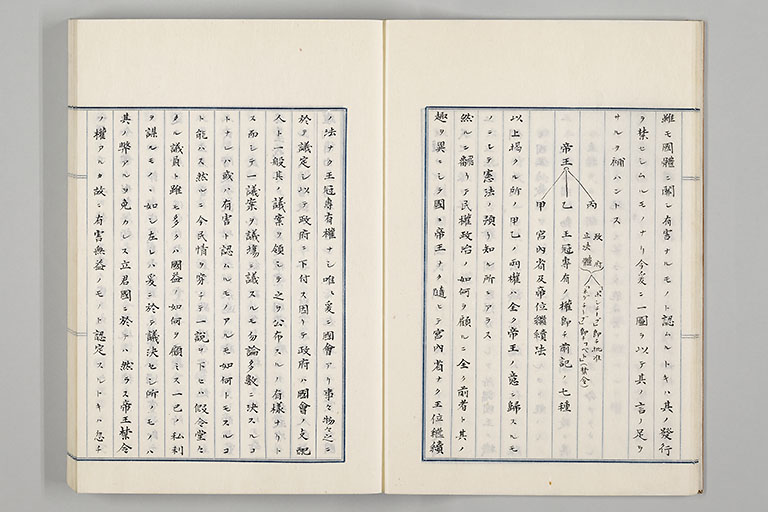 雖モ國體ニ關シ有害ナルモノト認ムルトキハ其ノ發行
ヲ禁セシムルモノナリ今爰ニ一圖ヲ以テ其ノ言ノ足ラ
サルヲ補ハントス
帝王
丙 政府
立法體
乙 王冠專有ノ權即チ前記ノ七種
甲 宮內省及帝位繼續法
以上揭クル所ノ甲乙ノ利權ハ全ク帝王ノ意ニ歸スルモ
ノニシテ憲法ノ預リ知ル所ニアラス
然ルニ飜リテ民權政治ノ如何ヲ顧ルニ全ク前者ト其ノ
趣ヲ異ニシテ國ニ帝王ナク隨ヒテ宮內省ナク王位繼續
ノ法ナク王冠專有權ナシ唯々爰ニ國會アリ事々物々之ニ
於テ議定シ以テ政府ニ下付ス因リテ政府ハ國會ノ支配
人ト一般其ノ議案ヲ領シテ之ヲ公布スルノ有樣ナリト
ス而シテ一議案ヲ議場ニ議スルモ勿論多數ニ決スルコ
トナレハ或ハ有害ト認ムルモノアルモ如何トモスルコ
ト能ハス然ルニ今民情ヲ穿チテ一說ヲ下セハ假令堂々
タル議員ト雖モ多クハ國益ノ如何ヲ顧ミス一己ノ私利
ヲ謀ルモノヽ如シ左レハ爰ニ於テ議決セシ所ノモノハ
其ノ弊アルヲ免カレス立君國ニ於テハ然ラス帝王禁令
ノ權アルカ故ニ有害無益ノモノト認定スルトキハ忽チ